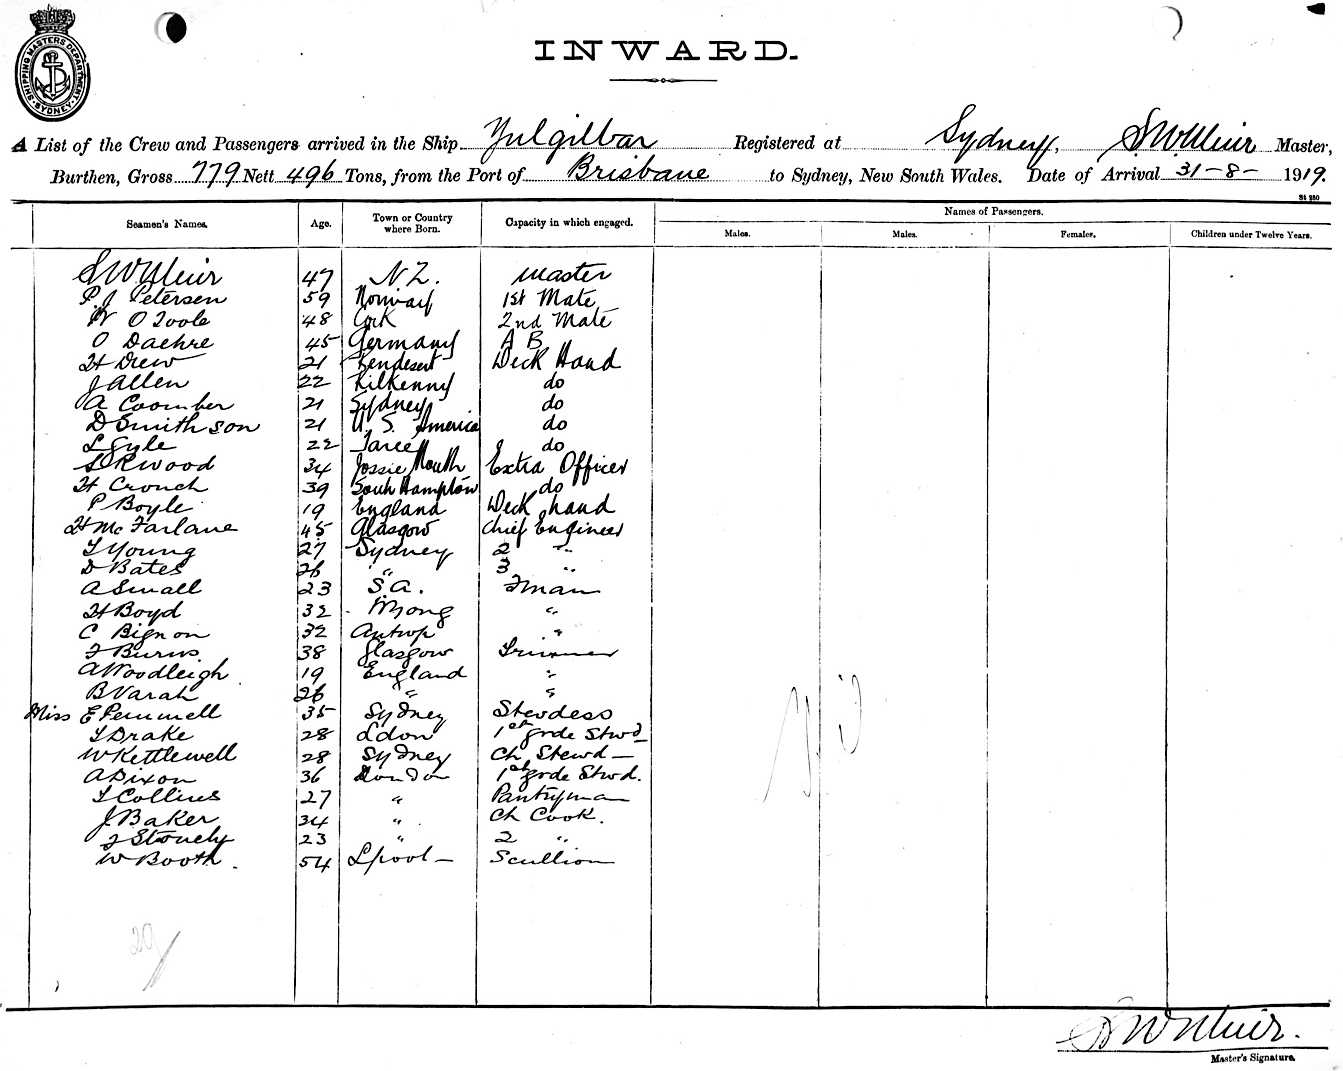 SHIPPING MASTERS DEPARTMENT
SYDNEY
INWARD.
A List of the Crew and Passengers arrived in the Ship Yulgilbar Registered at Sydney, S W Muir Master,
Burthen, Gross 779 Nett 496 Tons, from the Port of Brisbane to Sydney, New South Wales. Date of Arrival 31-8- 1919.
St 280
Seamen's Names. Age. Town or Country where Born. Capacity in which engaged. Names of Passengers.
Males. Males. Females. Children under Twelve Years.
S W Muir 47 N Z. Master
P. J Petersen 59 Norway 1st Mate
W O Toole 48 Cork 2nd Mate
O Daehre 45 Germany A B
H Drew 21 Deck Hand
J Allen 22 Kilkenny do
A Coomber 21 Sydney do
D Smithson 21 U. S. America do
L Gyle 22 Taree do
S Kwood 34 Lossie Mouth Extra Officer
H Crouch 39 South Hampton do
P Boyle 19 England Deck hand
H McFarlane 45 Glasgow Chief Engineer
T Young 27 Sydney 2 "
D Bates 26 " 3 "
A Small 23 S.A. Fman
H Boyd 32 Wyong "
C Bignon 32 Antwp "
F Burns 38 Glasgow Trimmer
A Woodleigh 19 England "
B Varah 26 " "
Miss E Pemmell 35 Sydney Stewdess
T Drake 28 Ldon 1st grde Stwd
W Kettlewell 28 Sydney Ch Stewd
A Dixon 36 London 1st grde Stwd.
T Collins 27 " Pantryman
J Baker 34 " Ch Cook.
F Stonely 23 " 2 "
W Booth. 54 Lpool Scullion
Nil
29
S W Muir.
Master's Signature.